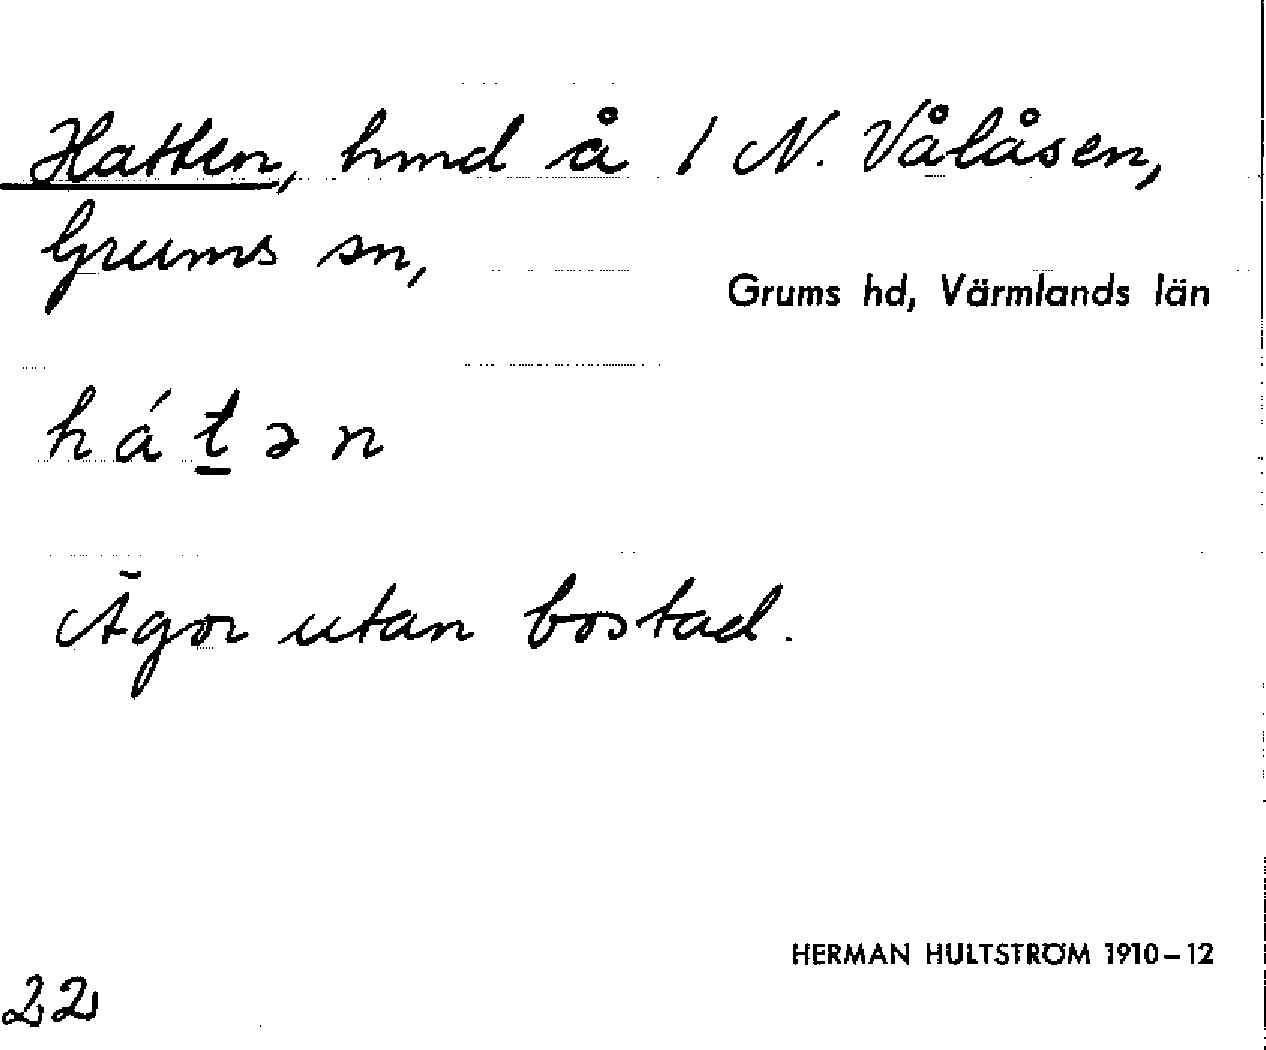 Hatten, hmd å 1 N. Vålåsen,
Grums sn,
Grums hd, Värmlands län
há<u>t</u>ən
Ägor utan bostad.
HERMAN HULTSTRÖM 1910–12
22